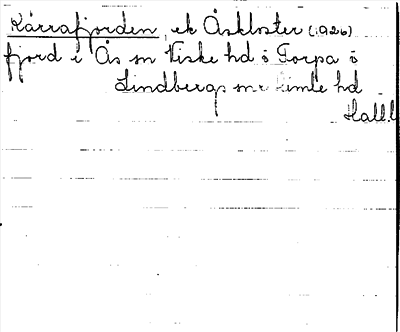 Kärrafjorden, ek Åskloster (1926)
fjord i Ås sn Viske hd o Torpa o
Lindbergs snr Himle hd
Hall.l